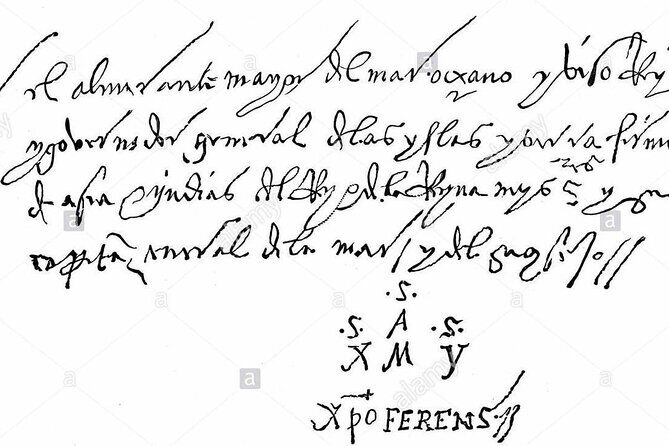 el almirante mayor del mar oçeano y viso Rey
y governador general de las yslas y tierra firm
de asia & yndias del Rey & de la Reyna mys S^res y su
capitā general de la mar y del consejo //
.S.
.S. A .S.
X M Y
Xp̄o FERENS //
alamy